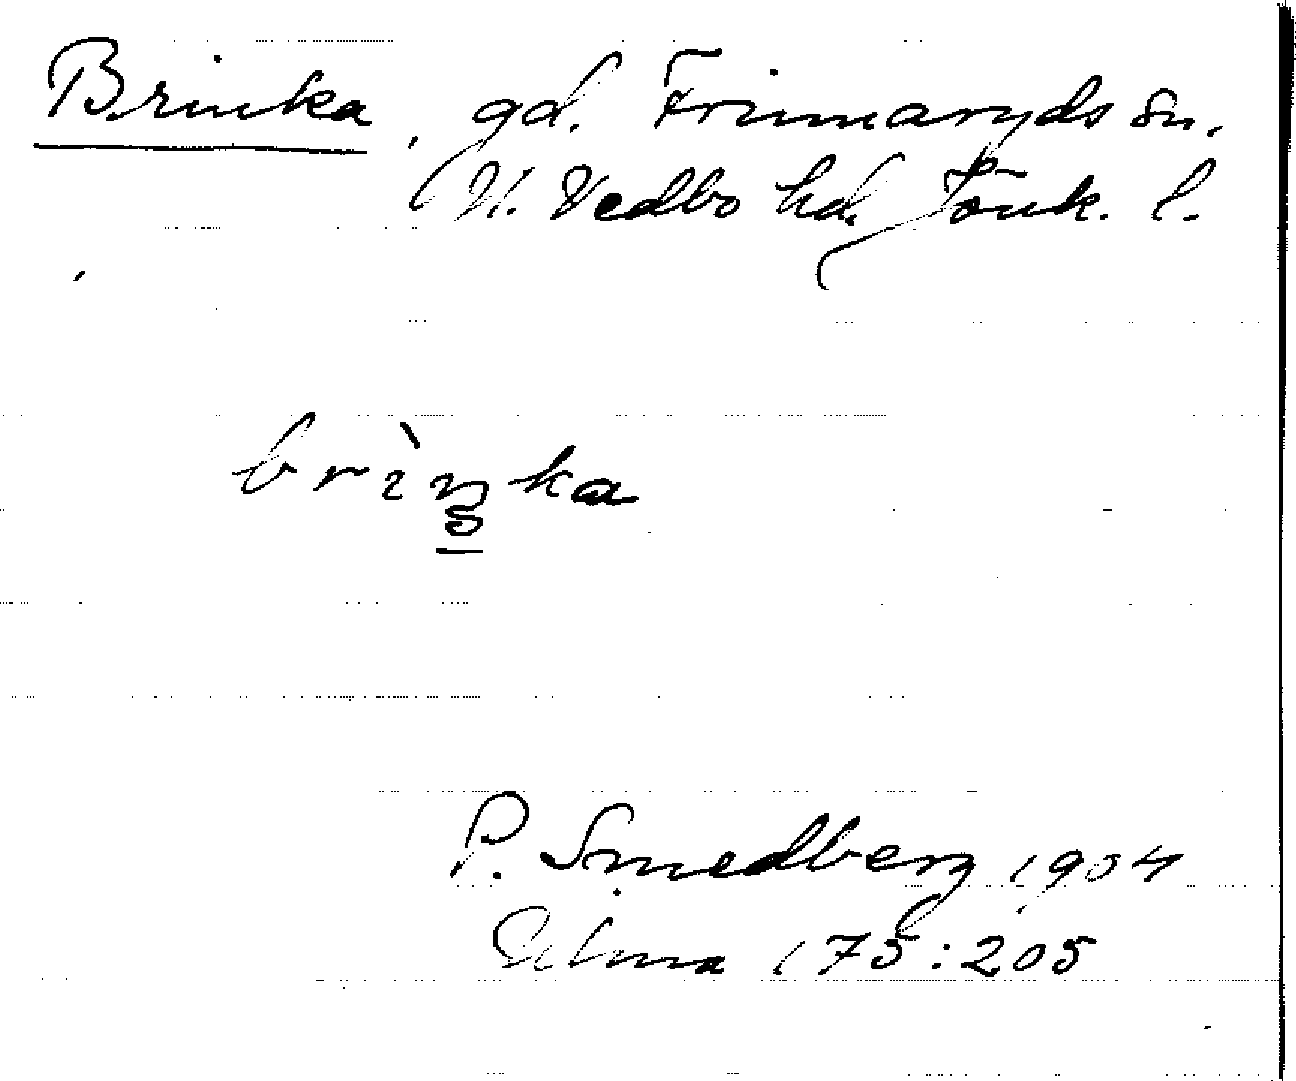 Brinka, gd. Frinnaryds sn.
N. Vedbo hd. Jönk. l.
brìŋka
P. Smedberg 1904
Ulma 175:205